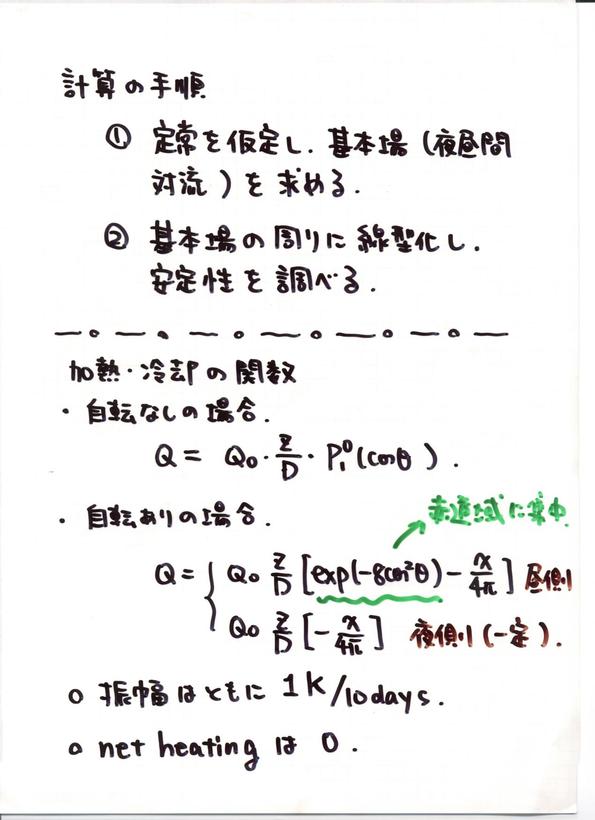 計算の手順
① 定常を仮定し、基本場（夜昼間
対流）を求める.
② 基本場の周りに線型化し.
安定性を調べる.
加熱・冷却の関数
・自転なしの場合.
Q = Q₀・Z/D・P₁⁰(cosθ).
・自転ありの場合.
赤道域に集中
Q = { Q₀ Z/D [exp(-8cos²θ) - x/4π] 昼側
Q₀ Z/D [-x/4π] 夜側(一定).
○ 振幅はともに 1K/10days.
○ net heating は 0.